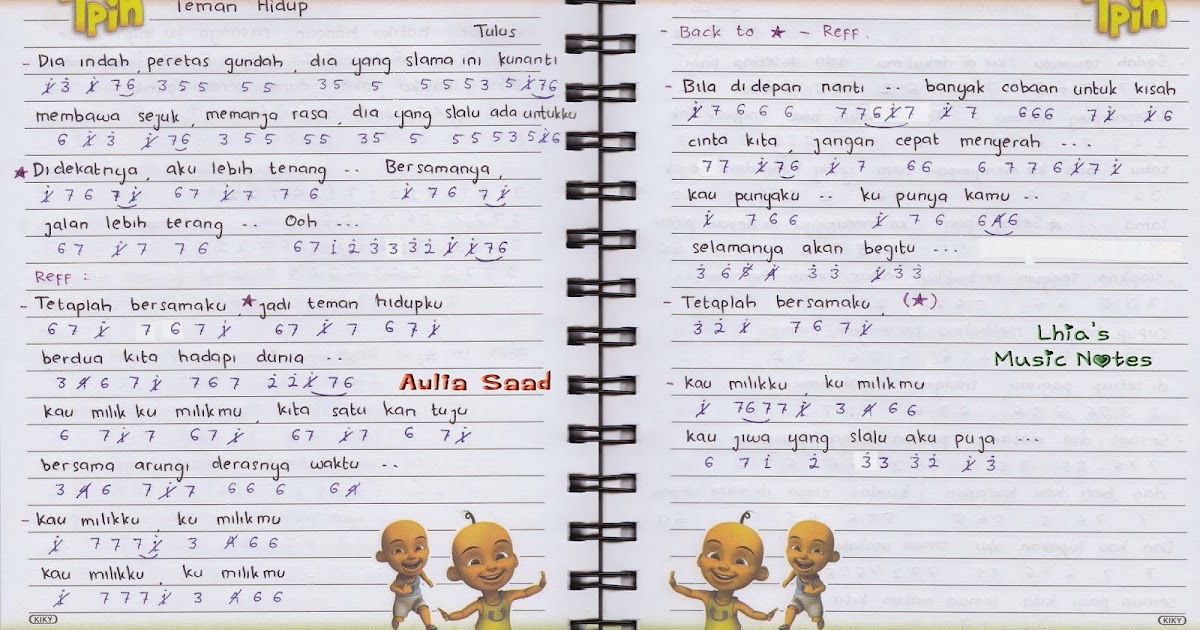 Ipin
Teman Hidup
Tulus
- Dia indah, peretas gundah, dia yang slama ini kunanti
1̸̇ 3̇ 1̸̇ 76 3 5 5 5 5 3 5 5 5 5 5 3 5 1̸̇76
membawa sejuk, memanja rasa, dia yang slalu ada untukku
6 1̸̇ 3̇ 1̸̇ 76 3 5 5 55 35 5 5 5 5 3 5 1̸̇6
★ Didekatnya, aku lebih tenang .. Bersamanya,
1̸̇ 7 6 7 1̸̇ 6 7 1̸̇ 7 7 6 1̸̇ 7 6 7 1̸̇
jalan lebih terang .. Ooh ...
6 7 1̸̇ 7 7 6 6 7 1̇ 2̇ 3̇ 3̇ 3̇ 2̇ 1̸̇ 1̸̇76
Reff :
- Tetaplah bersamaku ★ jadi teman hidupku
6 7 1̸̇ 7 6 7 1̸̇ 67 1̸̇ 7 6 7 1̸̇
berdua kita hadapi dunia ..
3 4̸ 6 7 1̸̇ 7 6 7 2̇ 2̇1̸̇ 76
Aulia Saad
kau milik ku milikmu, kita satu kan tuju
6 7 1̸̇ 7 6 7 1̸̇ 67 1̸̇7 6 7 1̸̇
bersama arungi derasnya waktu ..
3 4̸ 6 7 1̸̇ 7 6 6 6 6 4̸
- kau milikku, ku milikmu
1̸̇ 7 7 7 1̸̇ 3 4̸ 6 6
kau milikku, ku milikmu
1̸̇ 7 7 7 1̸̇ 3 4̸ 6 6
KIKY
Ipin
- Back to ★ - Reff.
- Bila didepan nanti .. banyak cobaan untuk kisah
1̸̇ 7 6 6 6 7 7 6 1̸̇ 7 1̸̇ 7 666 7 1̸̇ 1̸̇ 6
cinta kita, jangan cepat menyerah ...
7 7 1̸̇76 1̸̇ 7 6 6 6 7 7 6 1̸̇ 7 1̸̇
kau punyaku .. ku punya kamu ..
1̸̇ 7 6 6 1̸̇ 7 6 6 4̸ 6
selamanya akan begitu ...
3̇ 6̇ 5̸̇ 4̸̇ 3̇ 3̇ 1̸̇ 3̇ 3̇
- Tetaplah bersamaku, (★)
3̇ 2̇ 1̸̇ 7 6 7 1̸̇
Lhia's
Music Notes
- kau milikku, ku milikmu
1̸̇ 7677 1̸̇ 3 4̸ 6 6
kau jiwa yang slalu aku puja ...
6 7 1̇ 2̇ 3̇ 3̇ 3̇ 2̇ 1̸̇ 3̇
KIKY